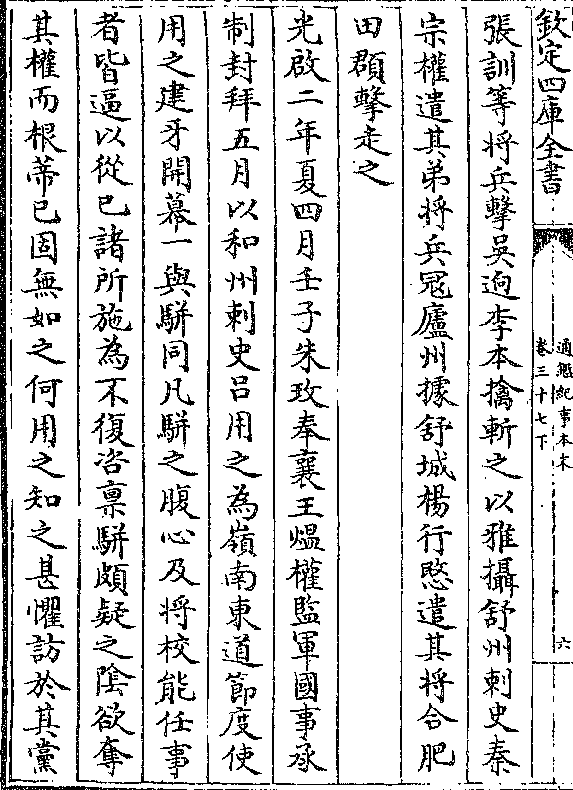 欽定四庫全書
通鑑紀事本末
卷三十七下
六
張訓等将兵擊吳迥李本擒斬之以雅攝舒州刺史秦
宗權遣其弟将兵冦廬州據舒城楊行愍遣其将合肥
田頵擊走之
光啟二年夏四月壬子朱玫奉襄王熅權監軍國事承
制封拜五月以和州刺史吕用之為嶺南東道節度使
用之建牙開幕一與駢同凡駢之腹心及将校能任事
者皆逼以從已諸所施為不復咨禀駢頗疑之隂欲奪
其權而根蒂已固無如之何用之知之甚懼訪於其黨